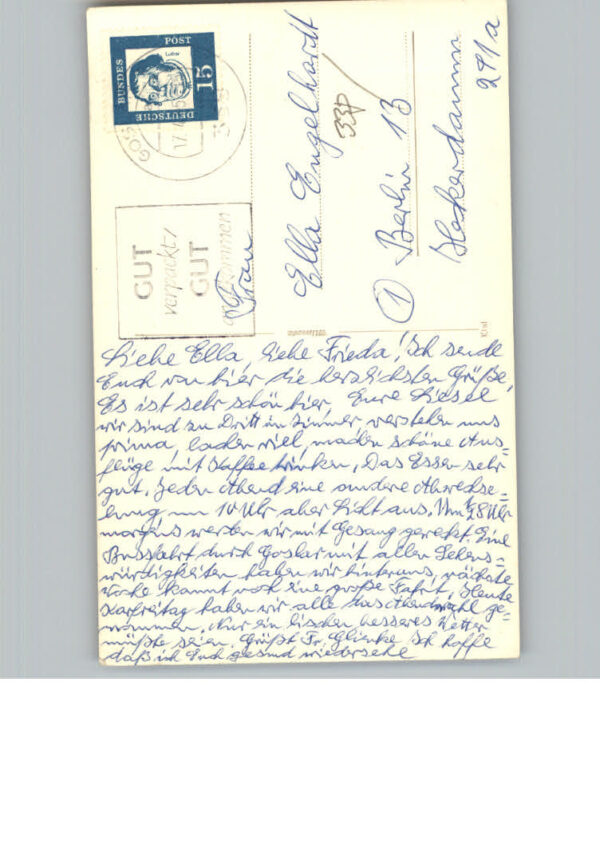 DEUTSCHE
BUNDES
POST
15
Luther
GOS
17.4.
GUT
verpackt/
GUT
Frau
Ella Engelhardt
33p
① Berlin 13
Heckerdamm
291a
Liebe Ella, liebe Frieda! Ich sende
Euch von hier die herzlichsten Grüße,
Es ist sehr schön hier, Eure Liesel
wir sind zu Dritt in Zimmer, verstehen uns
prima, lachen viel, machen schöne Aus=
flüge mit Kaffee trinken, Das Essen sehr
gut. Jeden Abend eine andere Abwechse=
lung um 10 Uhr aber Licht aus. Um 1/2 8 Uhr
morgens werden wir mit Gesang geweckt. Eine
Busfahrt durch Goslar mit allen Sehens=
würdigkeiten haben wir hinter uns, nächste
Woche kommt noch eine große Fahrt, Heute
Karfreitag haben wir alle das Abendmahl ge=
nommen, Nur ein bischen besseres Wetter
müßte seien. Grüßt Fr. Glienke Ich hoffe
daß ich Euch gesund wiedersehe